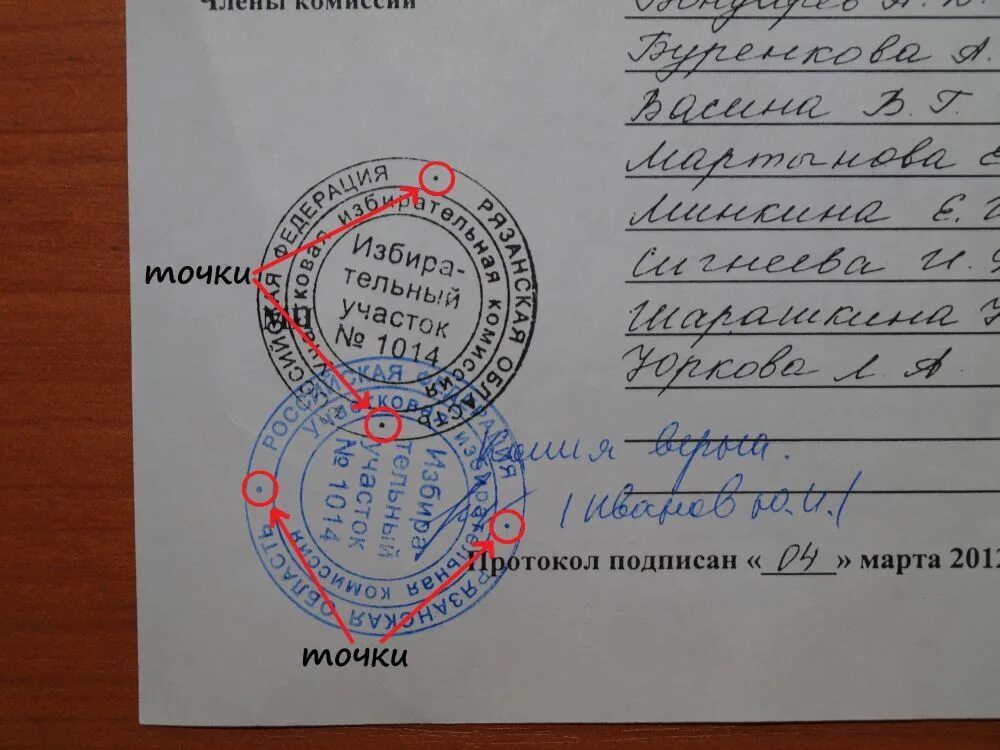 Члены комиссии
Бондарев А. В.
Буренкова А.
Васина В. Г.
Мартынова Е
Минкина Е.
Сигнеева И.
Шарашкина
Юркова Л. А
РОССИЙСКАЯ ФЕДЕРАЦИЯ РЯЗАНСКАЯ ОБЛАСТЬ
участковая избирательная комиссия
Избира-
тельный
участок
№ 1014
точки
МП
РОССИЙСКАЯ ФЕДЕРАЦИЯ РЯЗАНСКАЯ ОБЛАСТЬ
участковая избирательная комиссия
Избира-
тельный
участок
№ 1014
Копия верна.
(Иванов Ю.И.)
Протокол подписан « 04 » марта 2012
точки